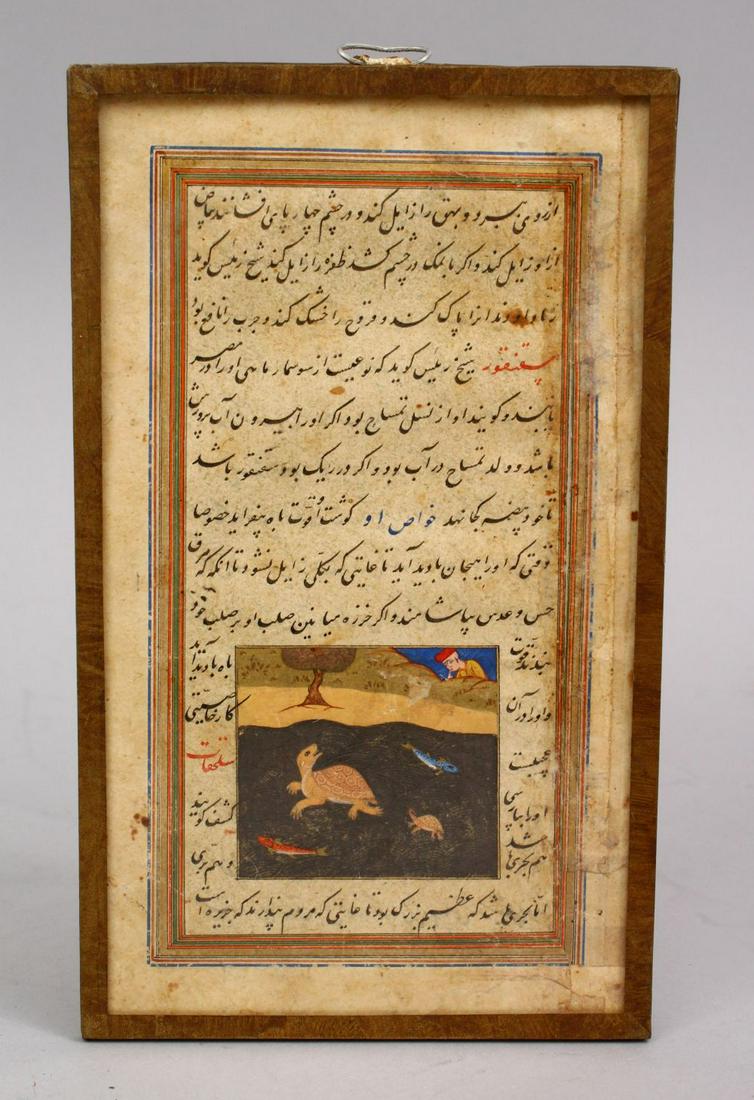 از روی ببرد و بهق را زایل کند و در چشم چهار پای افشانند بیاض
ازو زایل کند و اگر با نمک در چشم کشد ظفره را زایل کند شیخ رئیس گوید
دندانرا پاک کند و قروح را خشک کند و جرب را نافع بود
سقنقور شیخ رئیس گوید که نوعیست از سوسمار ماهی او را در مصر
یابند و گویند او از نسل تمساح بود اگر او را بیرون آب پرورش
باشد و ولد تمساح در آب بود و اگر در ریک بود سقنقور باشد
تا خود بیضه کجا نهد خواص او گوشت او قوت باه بیفزاید خصوصا
وقتی که او را هیجان بادید آید تا غایتی که بکلی زایل نشود تا آنکه که مرق
خس و عدس بیاشامند و اگر خرزه میانین صلب او بر صلب خود
بندند قوت باه بادید آید
و او را در آن کار خاصیتی
عجیبست سلحفات
او را بپارسی کشف گویند
هم بحری باشد و هم بری
اما بحری باشد که عظیم بزرگ بود تا غایتی که مردم پندارند که جزیره است